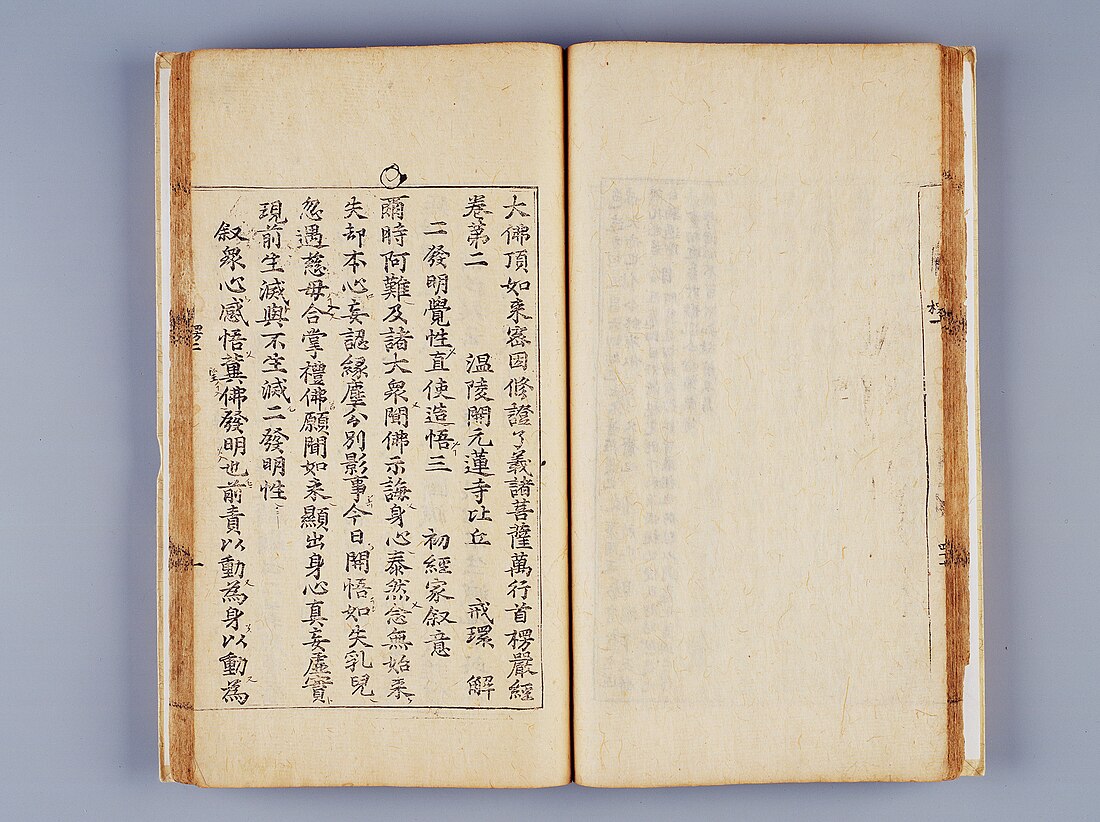 大佛頂如來密因修證了義諸菩薩萬行首楞嚴經
卷第二 温陵開元蓮寺比丘 戒環 解
二發明覺性直使造悟三 初經家叙意
爾時阿難及諸大衆聞佛示誨身心泰然念無始來
失却本心妄認緣塵分別影事今日開悟如失乳兒
忽遇慈母合掌禮佛願聞如來顯出身心真妄虛實
現前生滅與不生滅二發明性
叙衆心感悟冀佛發明也前責以動為身以動為